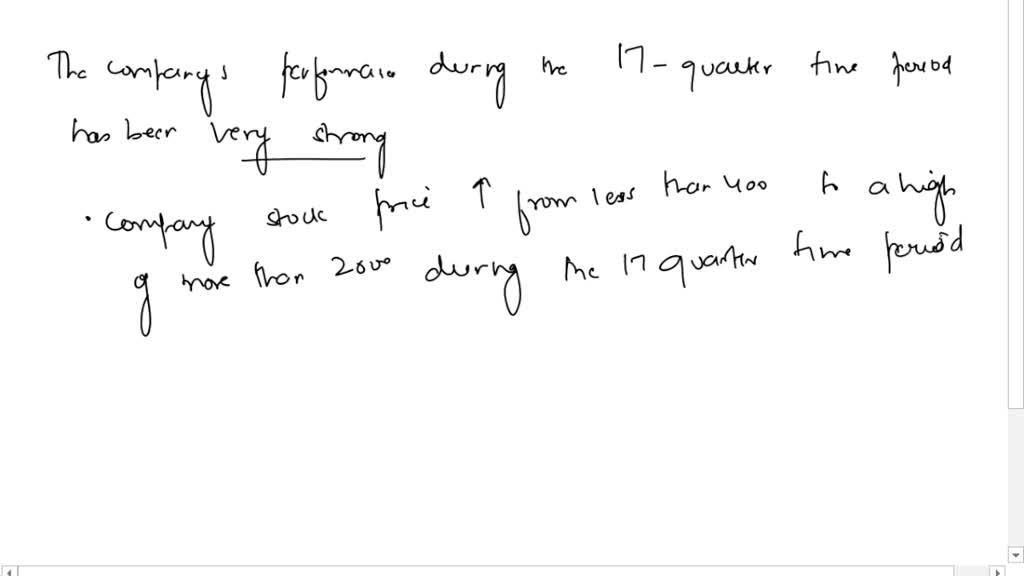 The company's performance during the 17-quarter time period
has been very strong
• Company stock price ↑ from less than 400 to a high
of more than 2000 during the 17 quarter time period